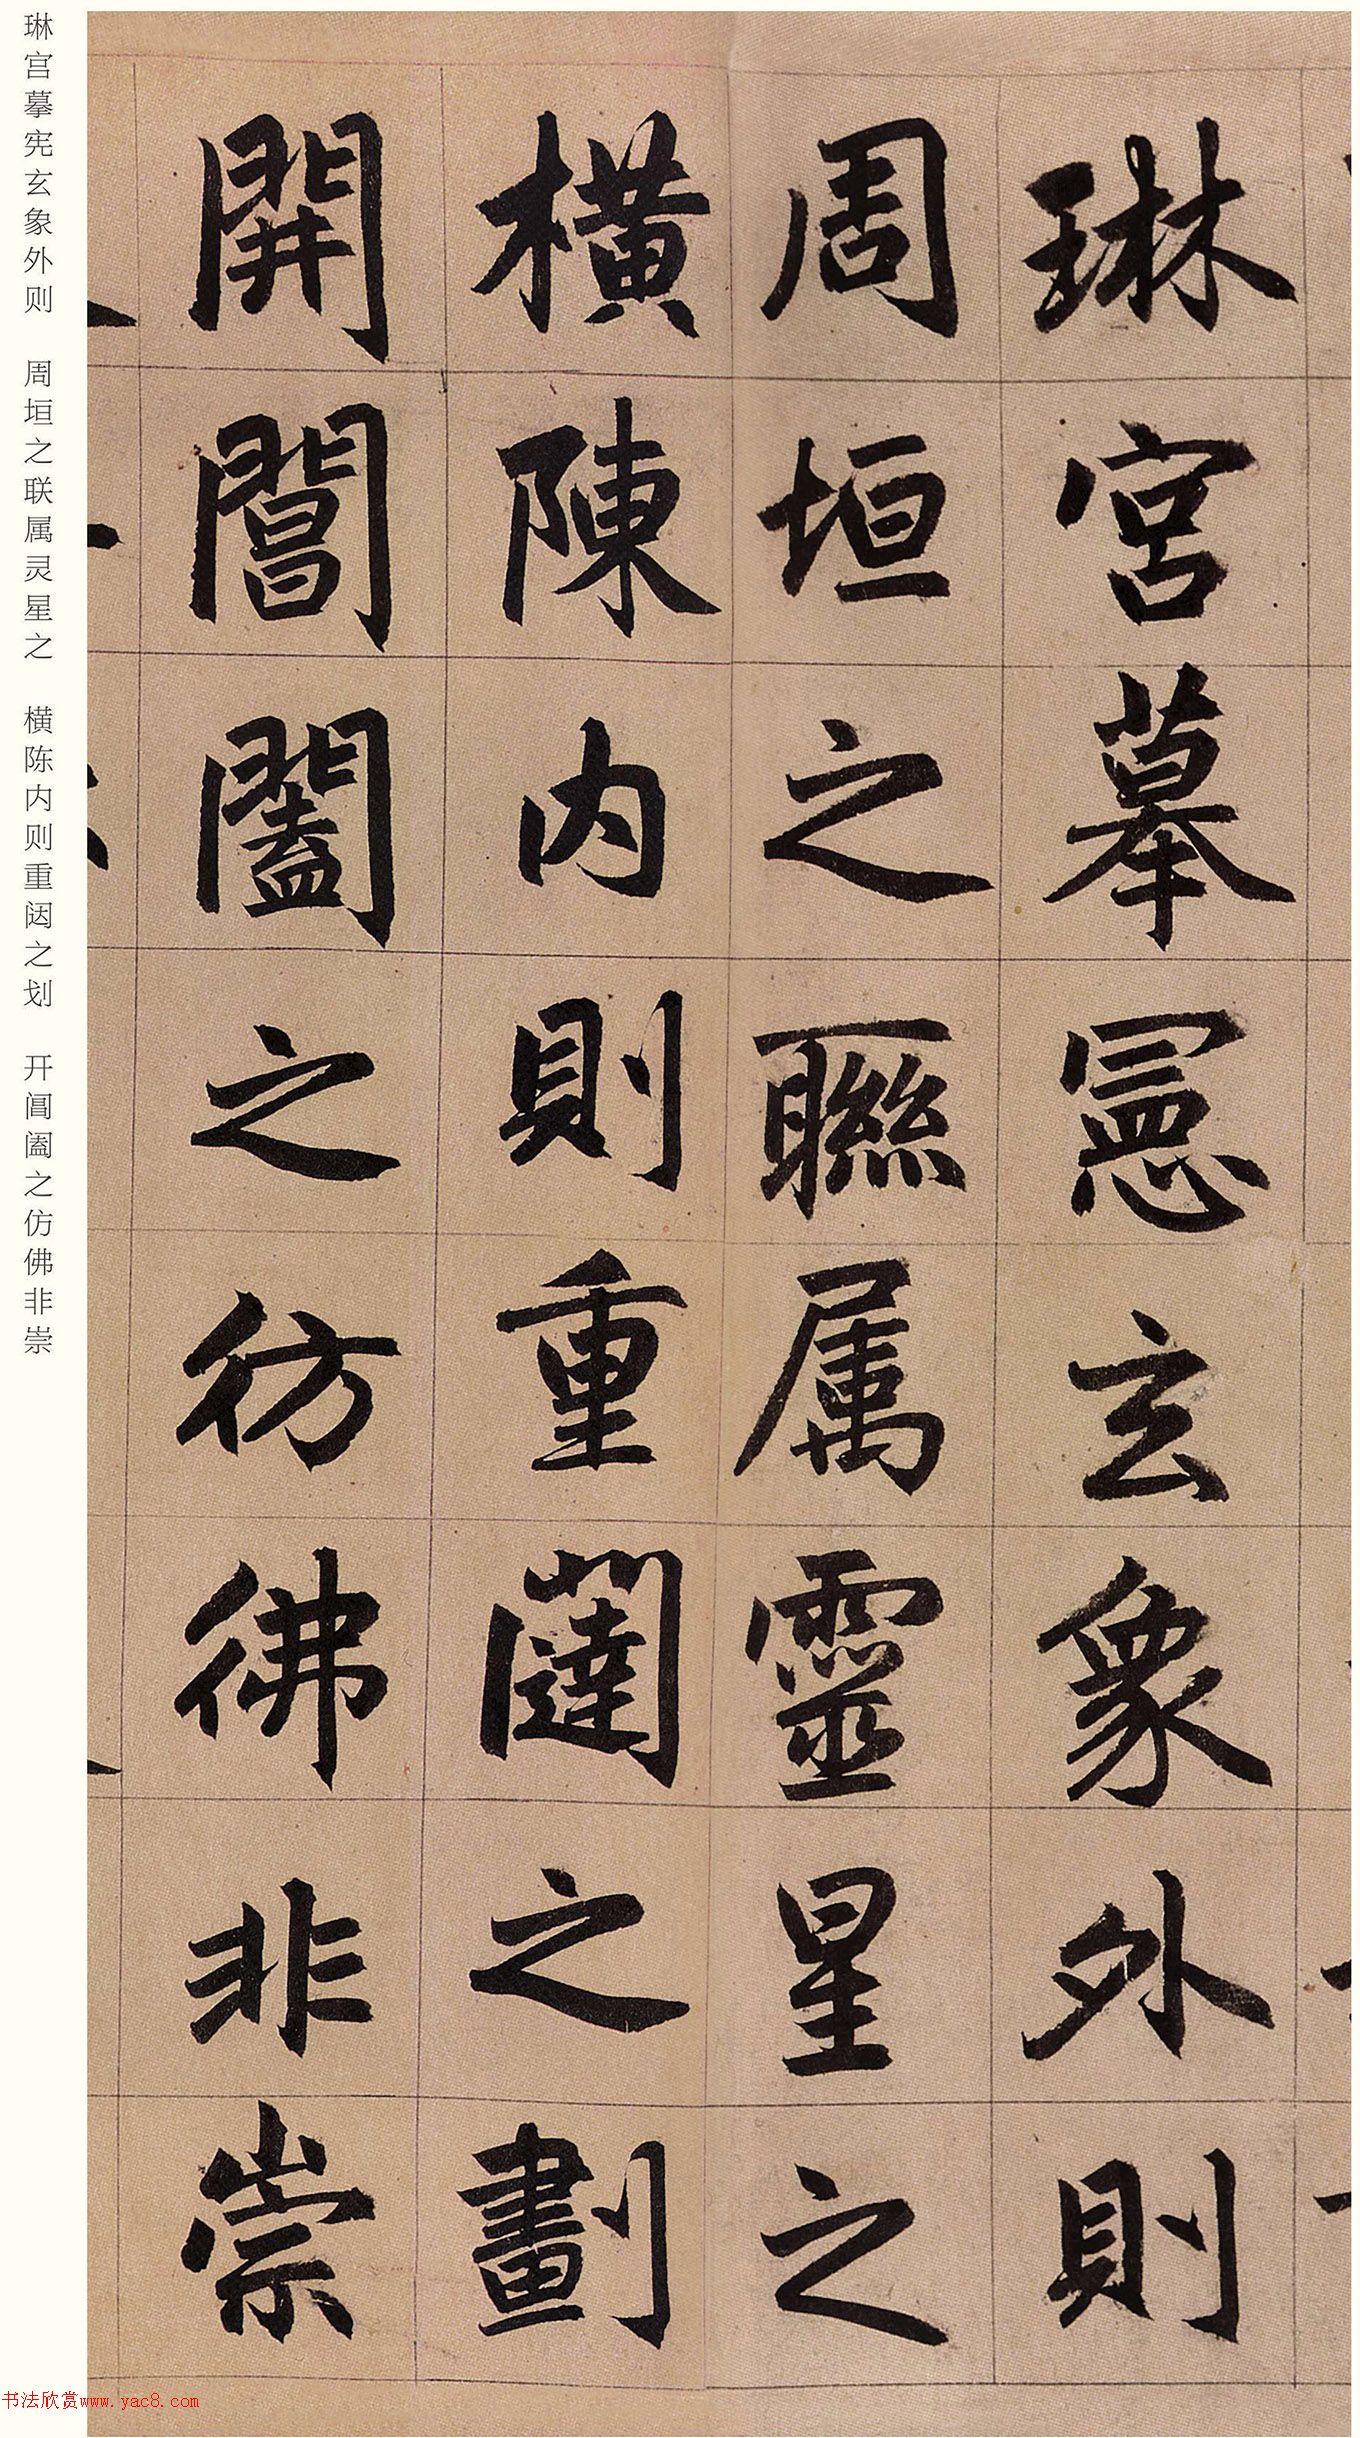 琳宮摹憲玄象外則
周垣之聯属靈星之
橫陳内則重闥之劃
開閶闔之彷彿非崇
琳宫摹宪玄象外则 周垣之联属灵星之 横陈内则重闼之划 开阊阖之仿佛非崇
书法欣赏www.yac8.com